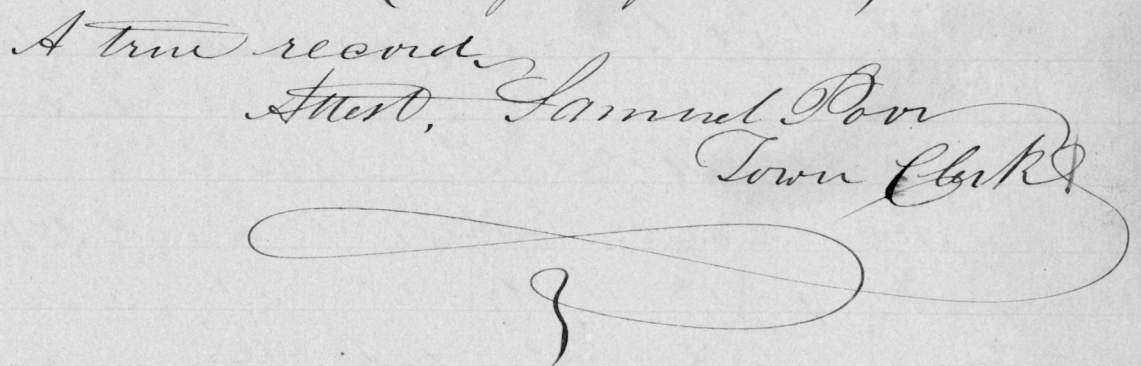 A true record,
Attest, Samuel Poor
Town Clerk